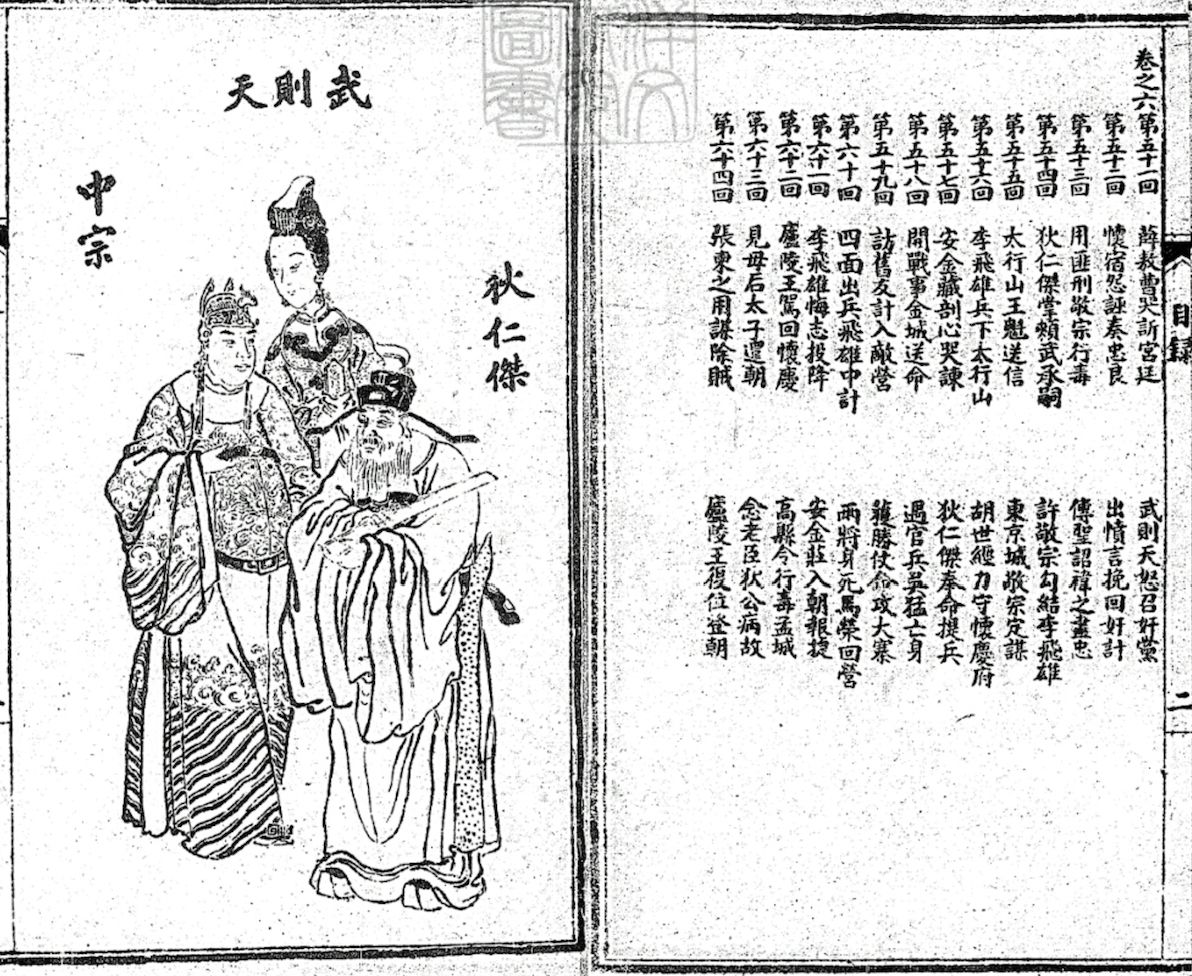 目錄
二
卷之六 第五十一回 薛敖曹哭訴宮廷 武則天怒召奸黨
第五十二回 懷宿怨誣奏忠良 出憤言挽回奸計
第五十三回 用匪刑敬宗行毒 傳聖詔禕之盡忠
第五十四回 狄仁傑掌頰武承嗣 許敬宗勾結李飛雄
第五十五回 太行山王魁送信 東京城敬宗定謀
第五十六回 李飛雄兵下太行山 胡世經力守懷慶府
第五十七回 安金藏剖心哭諫 狄仁傑奉命提兵
第五十八回 開戰事金城送命 遇官兵吳猛亡身
第五十九回 訪舊友計入敵營 獲勝仗命攻大寨
第六十回 四面出兵飛雄中計 兩將身死馬榮回營
第六十一回 李飛雄悔志投降 安金莊入朝報捷
第六十二回 廬陵王駕回懷慶 高縣令行毒孟城
第六十三回 見母后太子還朝 念老臣狄公病故
第六十四回 張柬之用謀除賊 廬陵王復位登朝
武則天
狄仁傑
中宗